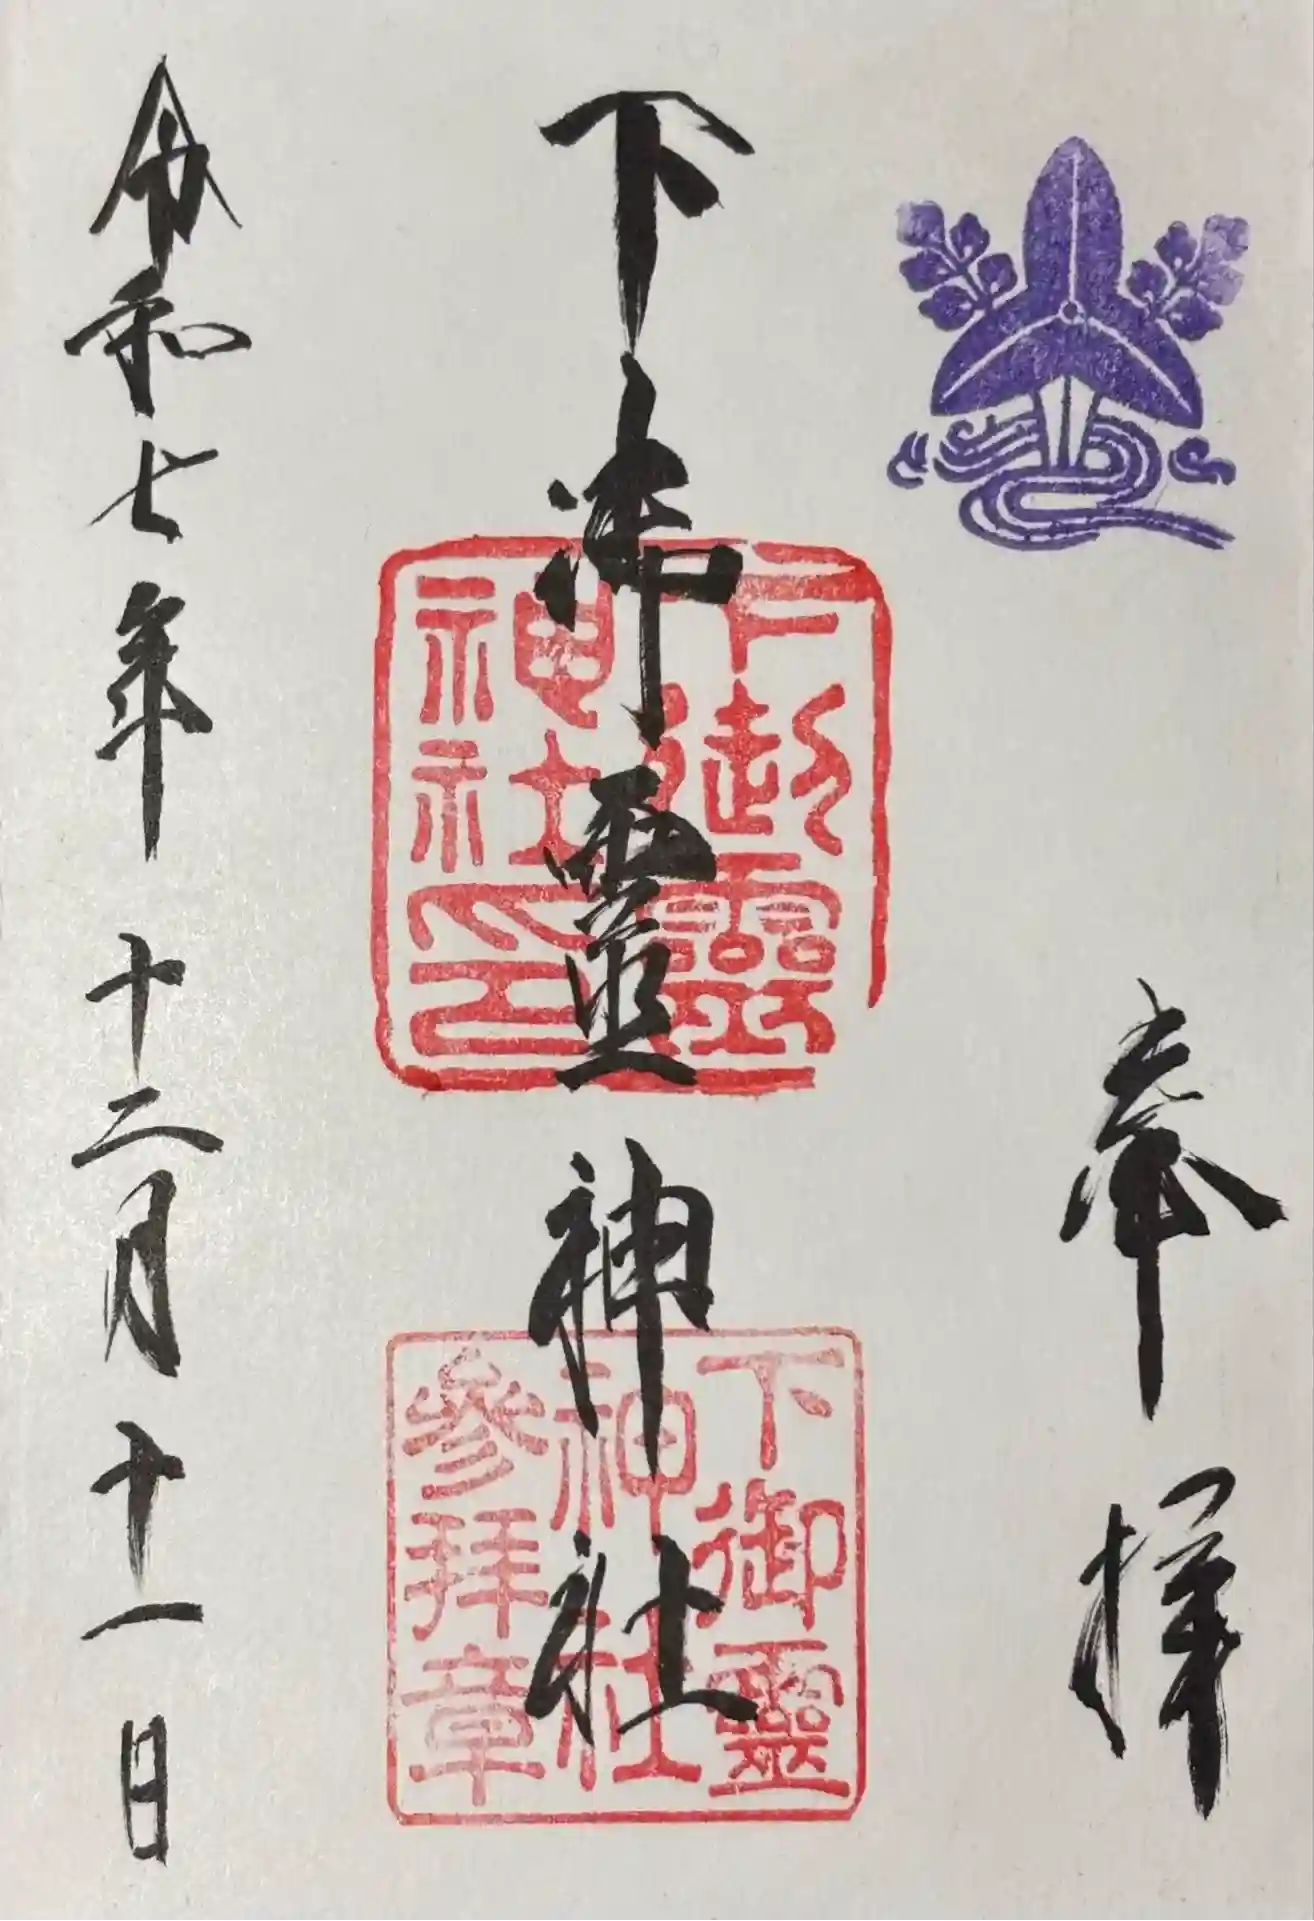 奉拝
下御霊神社
下御靈
神社印
下御靈
神社
參拜章
令和七年十二月十一日